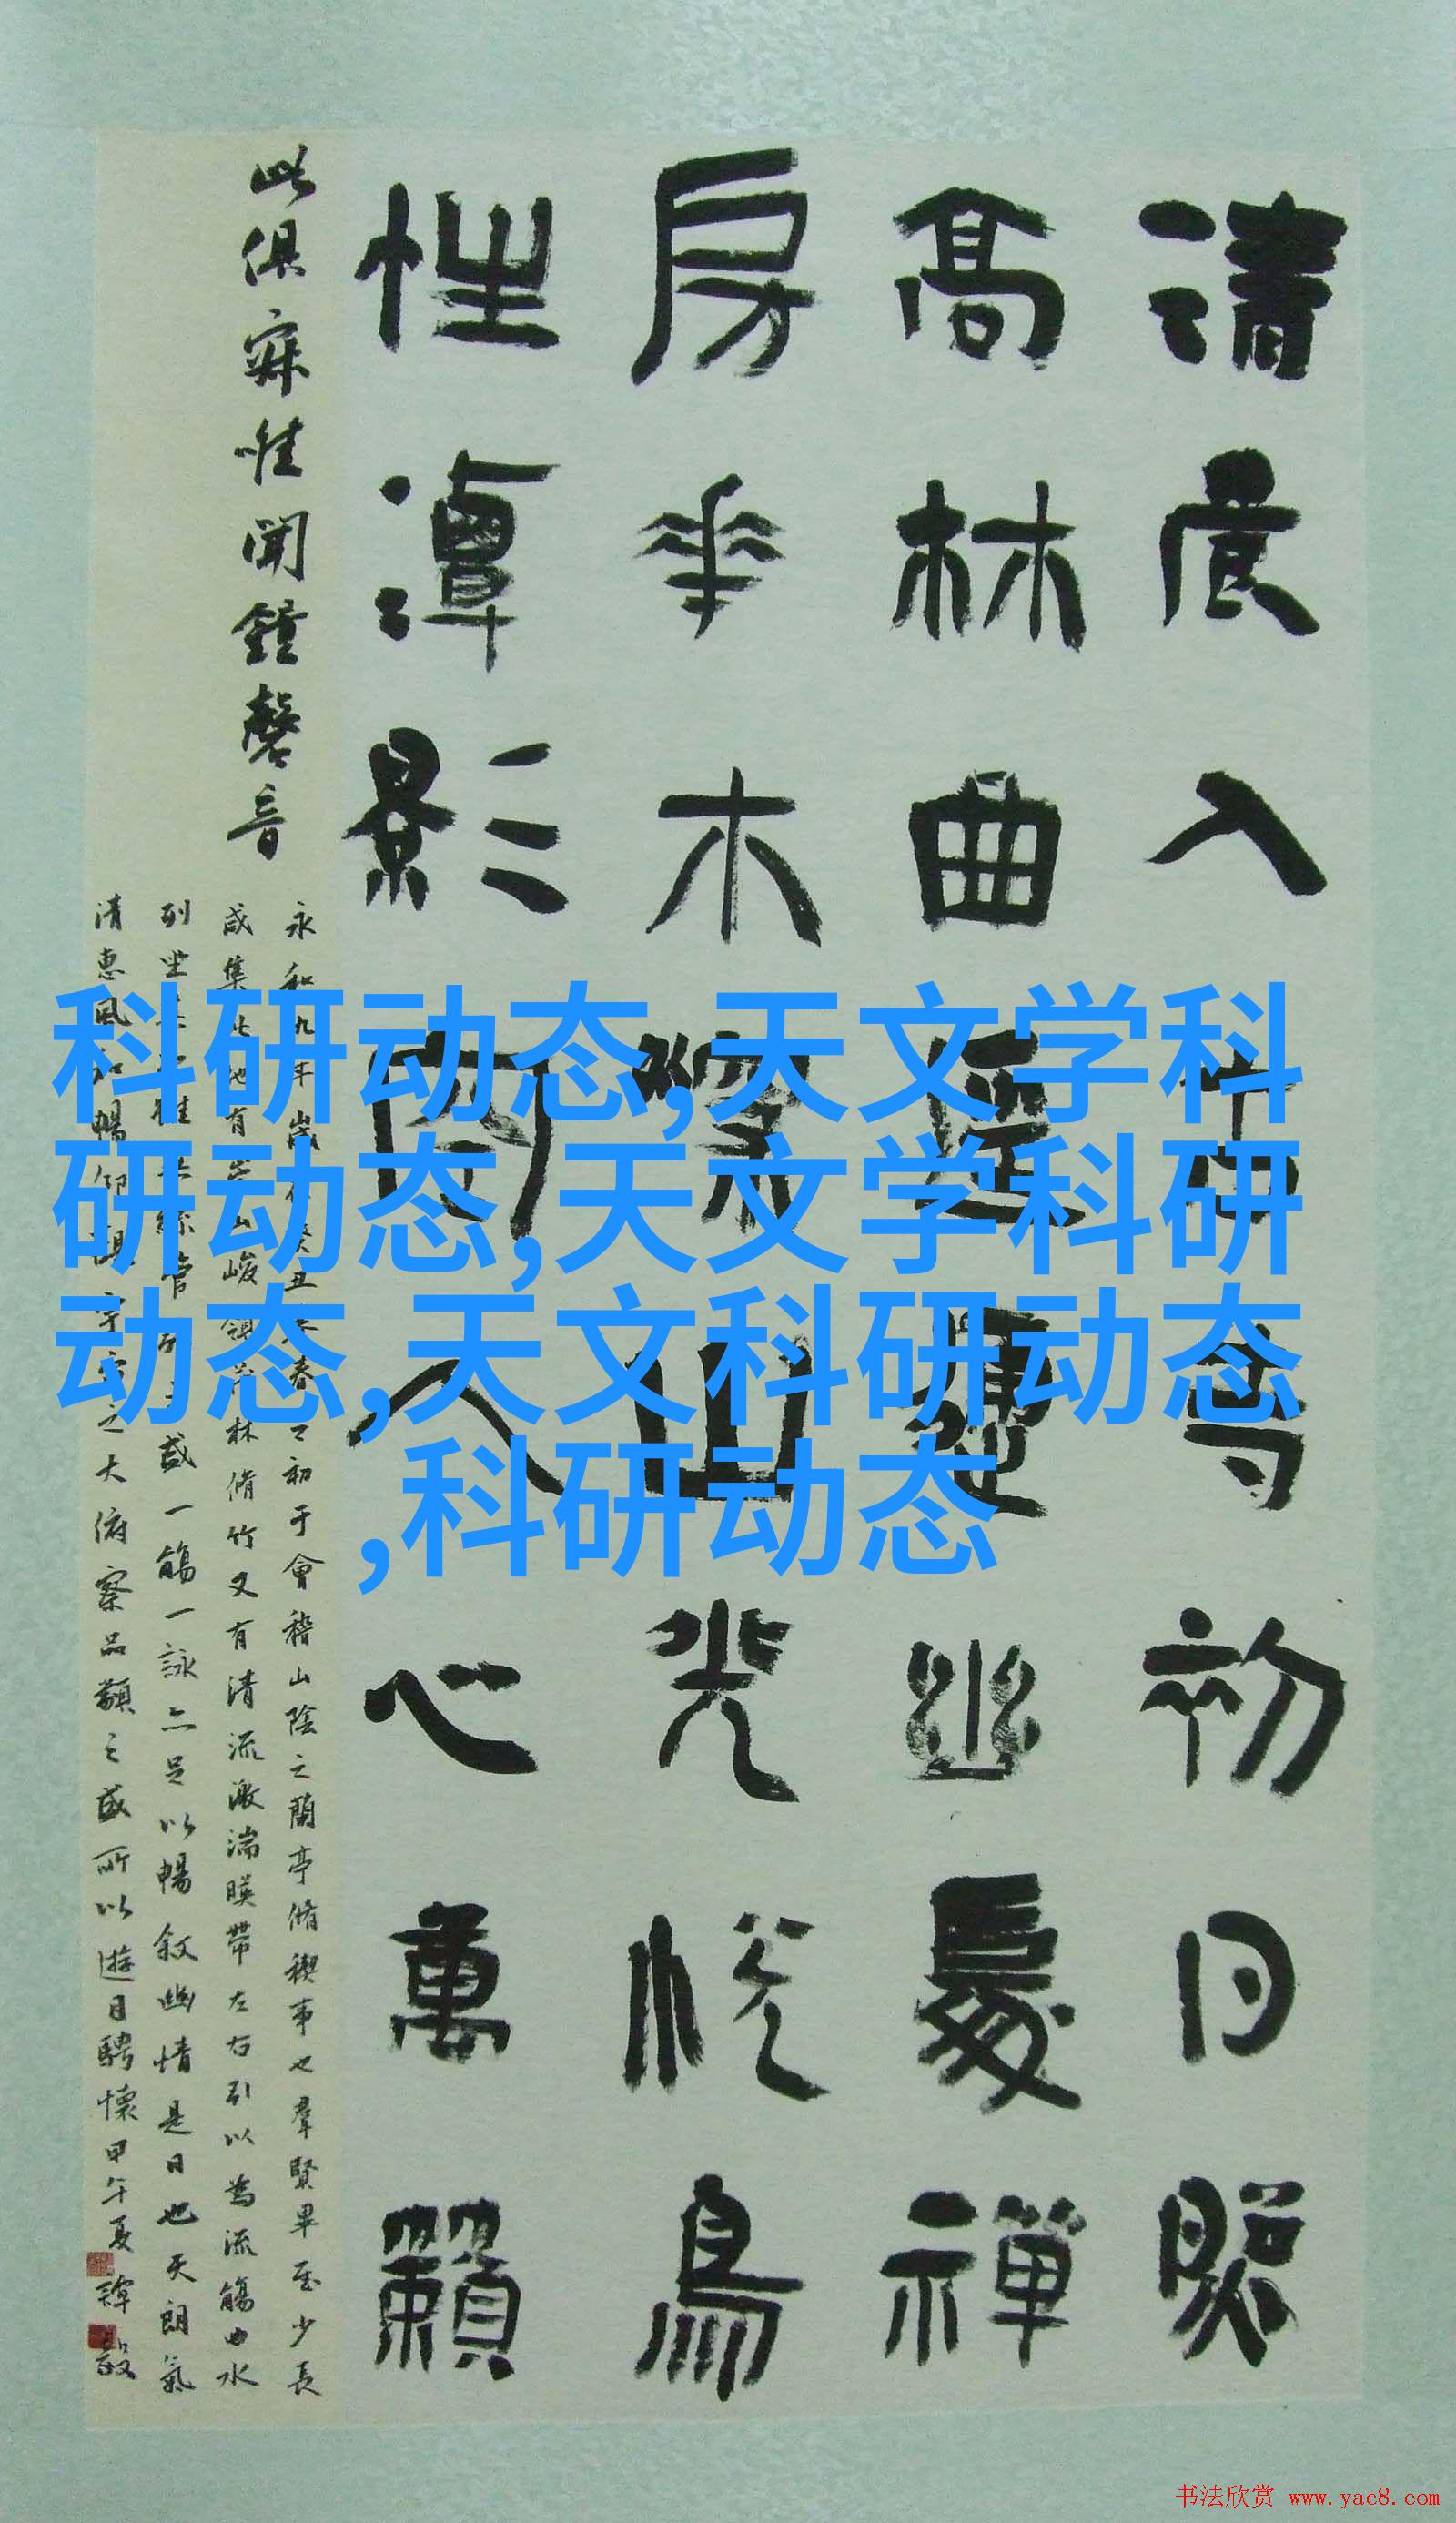 清晨入古寺初日照
高林曲徑通幽處禪
房花木深山光悅鳥
性潭影空人心萬籟
此俱寂惟聞鐘磬音
永和九年歲在癸丑暮春之初于會稽山陰之蘭亭脩稧事也羣賢畢至少長
咸集此地有崇山峻領茂林脩竹又有清流激湍暎帶左右引以為流觴曲水
列坐其次雖無絲管弦之盛一觴一詠亦足以暢敘幽情是日也天朗氣
清惠風和暢仰觀宇宙之大俯察品類之盛所以遊目騁懷甲午夏
科研动态,天文学科
研动态,天文学科研
动态,天文科研动态
,科研动态
书法欣赏 www.yac8.com